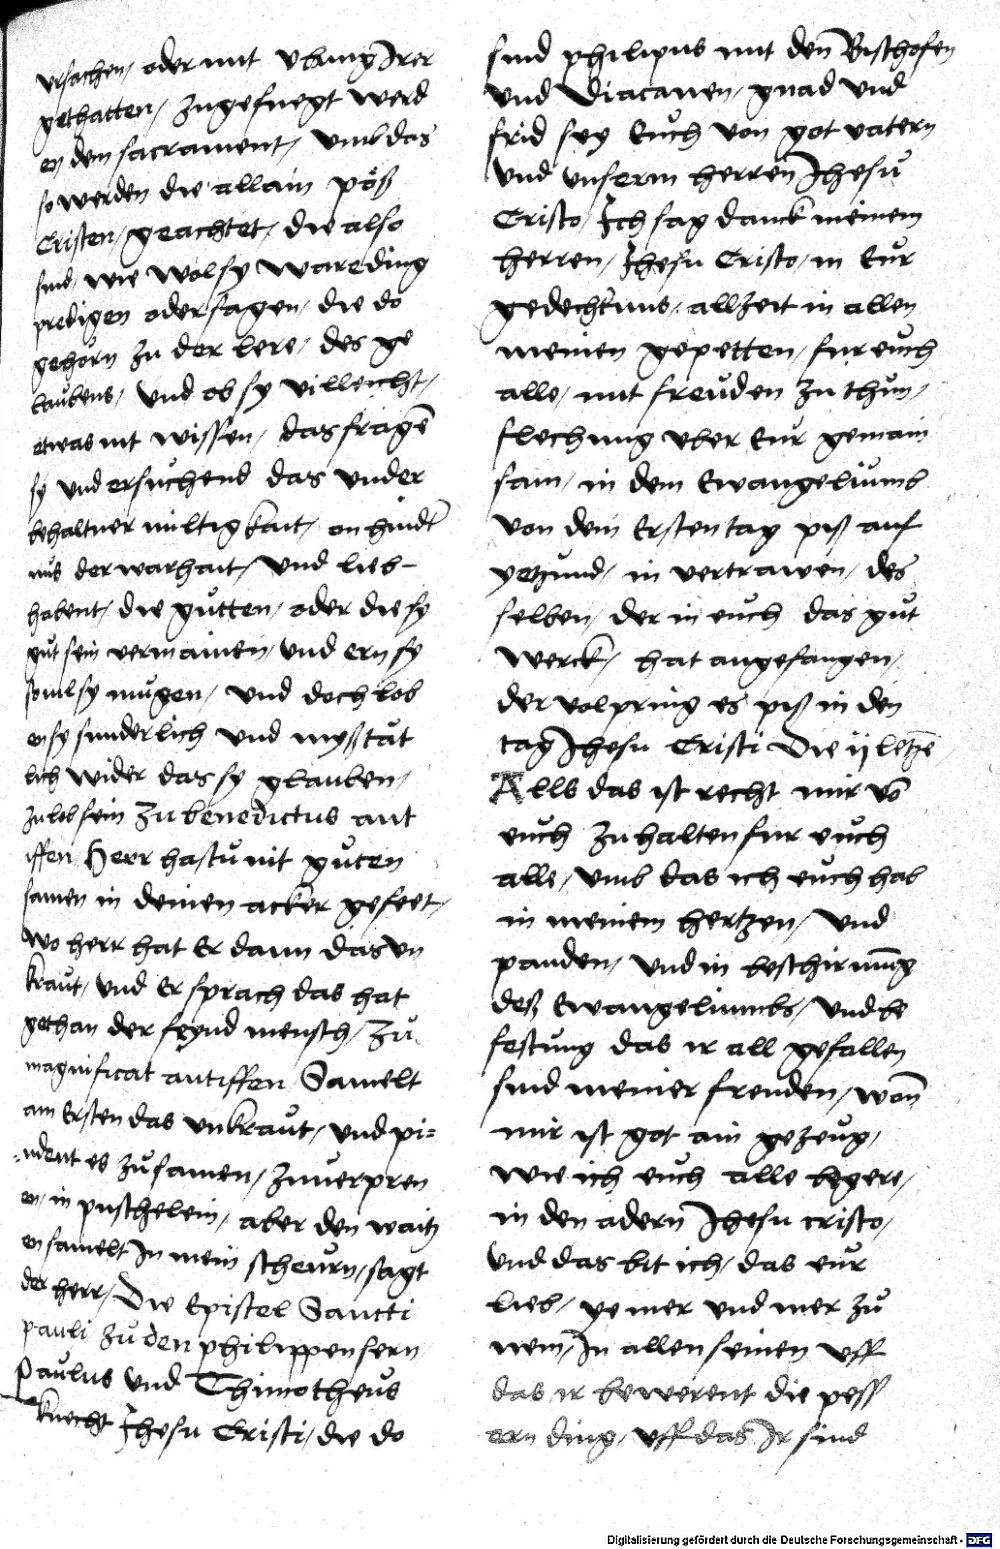 ursachen, oder mit ubung Irer
gethatten, zugefuegt werd
en dem sacrament, umb das
so werden die allain pöß
Cristen, geachtet, die also
sind, wie wol sy ware ding
predigen oder sagen, die do
gehörn zu der lere, des ge
laubens, und ob sy villeicht,
etwas nit wissen, das fragē
sy und ersuchend das under
behaltner miltigkait, on hindt
nus der warhait, und lieb
habent, die gütten, oder die sy
güt sein vermainen, und ern sy
sovil sy mugen, und doch lob
en sy sunderlich und
lich wider das sy glauben,
zu lob sein Zu benedictus ant
iffen Herr hastu nit guten
samen in deinen acker geseet,
wo herr hat Er dann das un
kraut, und Er sprach das hat
gethan der feynd mensch, Zu
magnificat antiffen Samelt
am Ersten das unkraut, und pi=
=ndent es zu samen, zu verpren
en, in puschelein, aber den waitz
en samelt In mein scheurn, sagt
der herr, Die Epistel Sancti
pauli zu den philippensern
Paulus und Thimotheus
knecht Jhesu Cristi, die do
sind philipus mit den Bischofen
und Diaconen, gnad und
frid sey Euch von got vatern
und unserm herren Jhesu
Cristo, Ich sag danck meinem
herren, Jhesu Cristo, in Eur
gedechtnus, allzeit in allen
meinen gepetten, fur euch
alle, mit freuden zu thun,
flechnung uber Eur gemain
sam, in dem Ewangeliumb
von dem Ersten tag piß auf
yetzund, in vertrawen, des
selben, der in euch das gut
werck, hat angefangen,
der volpring es piß in den
tag Jhesu Cristi Die ij letzē
Alls das ist recht mir vō
euch zu halten fur euch
alle, umb das ich euch hab
in meinem hertzen, und
panden, und in beschirmūg
deß Ewangeliumbs, und be
festung das ir all gesallen
sind meiner freuden, wan̄
mir ist got ain gezeug,
wie ich euch alle begere,
in den adern Jhesu cristo,
und das bit ich, das eur
lieb, ye mer und mer zu
nem, In allen seinen uff
das ir bewerent die pess
ern ding, uff das Ir sind
Digitalisierung gefördert durch die Deutsche Forschungsgemeinschaft - DFG